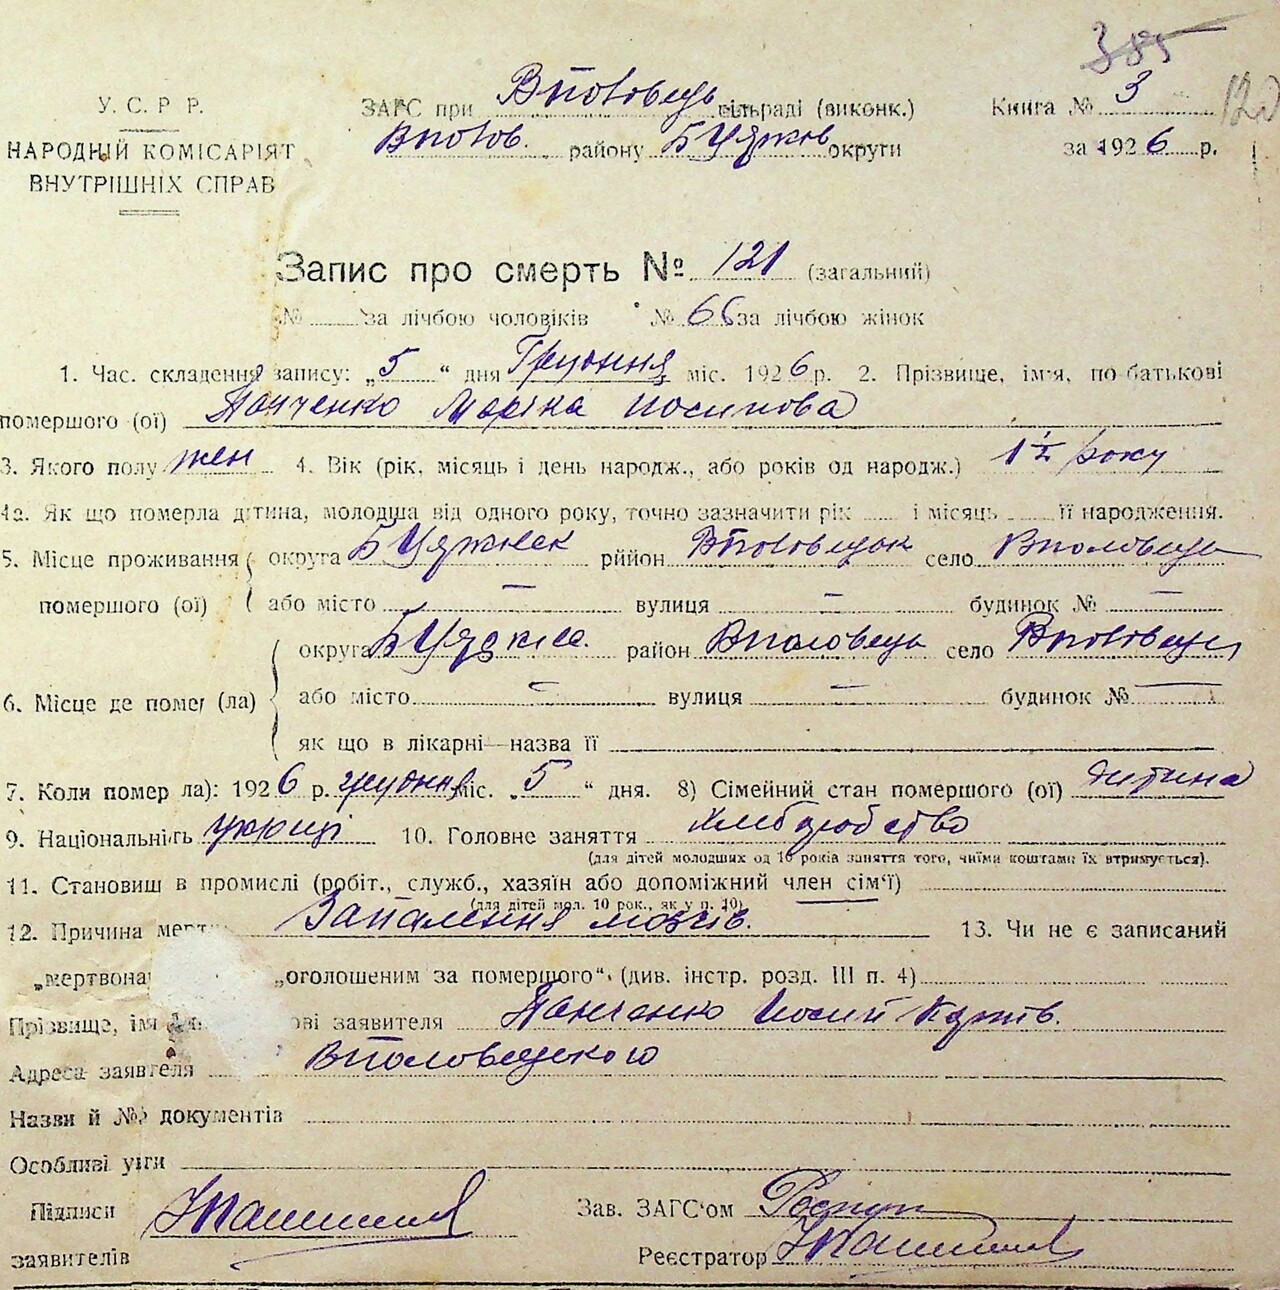 385
120
У. С. Р. Р.
НАРОДНІЙ КОМІСАРІЯТ
ВНУТРІШНІХ СПРАВ
ЗАГС при Вполовець сільраді (виконк.)
Вполов. району БЦержов округи
Книга № 3
за 1926 р.
Запис про смерть № 121 (загальний)
№ за лічбою чоловіків № 66 за лічбою жінок
1. Час. складення запису: „5“ дня Грудння міс. 1926 р. 2. Прізвище, ім'я, по-батькові
помершого (ої) Панченко Маріка Иосипова
3. Якого полу жен 4. Вік (рік, місяць і день народж., або років од народж.) 1½ року
4а. Як що померла дітина, молодша від одного року, точно зазначити рік і місяць її народження.
5. Місце проживання округа БЦержнск рйійон Вполовецьк село Вполовець
помершого (ої) або місто — вулиця — будинок № —
округа район Вполовець село Вполовець
6. Місце де помер (ла) або місто — вулиця — будинок № —
як що в лікарні—назва її
7. Коли помер ла): 1926 р. грудння міс. „5“ дня. 8) Сімейний стан помершого (ої) дитина
9. Національніть укр 10. Головне заняття хлібробство
(для дітей молодших од 10 років заняття того, чиїми коштами їх втримується).
11. Становиш в промислі (робіт., служб., хазяїн або допоміжний член сім'ї) —
(для дітей мол. 10 рок., як у п. 10)
12. Причина мерти Запалення мозгів. 13. Чи не є записаний
„мертвона „оголошеним за помершого“. (див. інстр. розд. III п. 4)
Прізвище, імя ові заявителя Панченко Иосип
Адреса заявтеля Вполовецького
Назви й №№ документів
Особливі уіги
Підписи
заявителів
Зав. ЗАГС'ом
Реєстратор